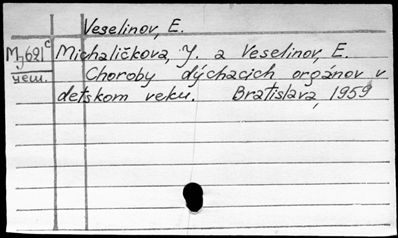 Veselinov, E.
Mj621c Michaličkova, J. a Veselinov, E.
чеш. Choroby dýchacich orgánov v
detskom veku. Bratislava, 1959